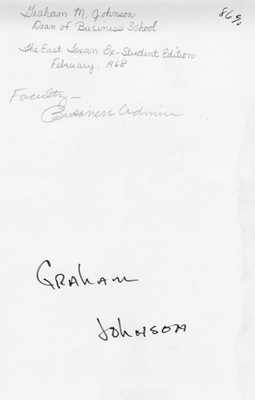 Graham M. Johnson
86%
Dean of Business School
The East Texan Ex-Student Edition
February, 1968
Faculty —
Business Admin
Graham
Johnson